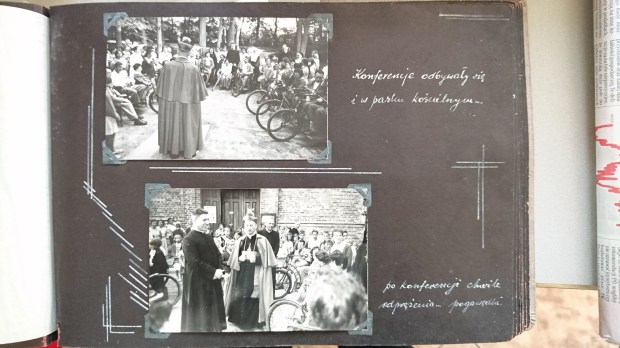 Konferencje odbywały się
i w parku kościelnym...
po konferencji chwile
odprężenia... pogawędki